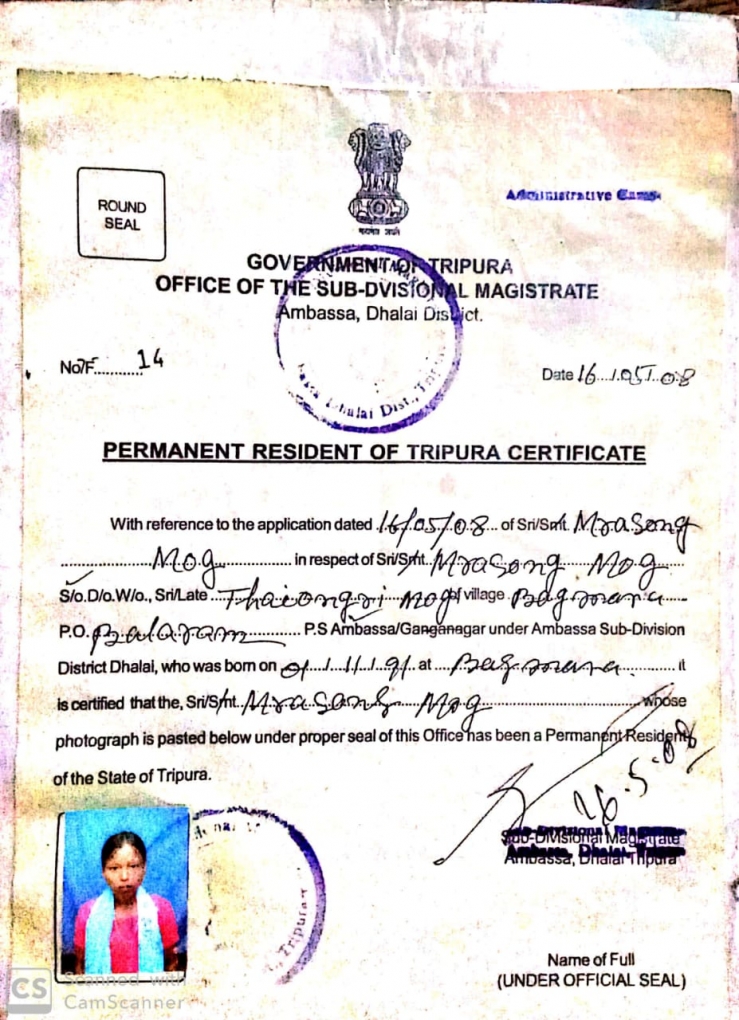 ROUND
SEAL
Administrative Camp
सत्यमेव जयते
GOVERNMENT OF TRIPURA
OFFICE OF THE SUB-DVISIONAL MAGISTRATE
Ambassa, Dhalai District.
No/F............14
Date 16...05...08
PERMANENT RESIDENT OF TRIPURA CERTIFICATE
With reference to the application dated 16/05/08 of Sri/Smt. Mrasong
Mog in respect of Sri/Smt. Mrasong Mog
S/o.D/o.W/o., Sri/Late Thaiongri Mog of village Bagmara
P.O. Balaram P.S Ambassa/Ganganagar under Ambassa Sub-Division
District Dhalai, who was born on 01/11/91 at Bagmara it
is certified that the, Sri/Smt. Mrasong Mog whose
photograph is pasted below under proper seal of this Office has been a Permanent Resident
of the State of Tripura.
Dhalai Dist., Tripura
16.5.08
Sub-Divisional Magistrate
Ambassa, Dhalai Tripura
Tripura
Name of Full
(UNDER OFFICIAL SEAL)
CS Scanned with
CamScanner